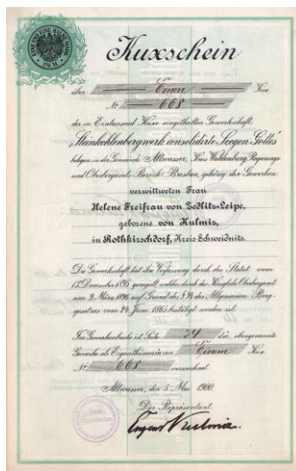 Kuxschein
über Einen Kux
№ 668
der in Eintausend Kuxe eingetheilten Gewerkschaft
„Steinkohlenbergwerk consolidirte Seegen Gottes"
belegen in der Gemeinde Altwasser, Kreis Waldenburg, Regierungs-
und Oberbergamts-Bezirk Breslau, gehörig der Gewerkin
verwittweten Frau
Helene Freifrau von Zedlitz-Leipe,
geborene von Kulmiz,
in Rothkirschdorf, Kreis Schweidnitz.
Die Gewerkschaft hat ihre Verfassung durch das Statut vom
13. December 1895 geregelt, welches durch das Königliche Oberbergamt
am 9. März 1896 auf Grund des § 94 des Allgemeinen Berg-
gesetzes vom 24. Juni 1865 bestätigt worden ist.
Im Gewerkenbuche ist Seite 74 die obengenannte
Gewerkin als Eigenthümerin von Einem Kux
№ 668 verzeichnet worden.
Altwasser, den 5. Mai 1900.
Der Repräsentant.
Eugen Kulmiz.